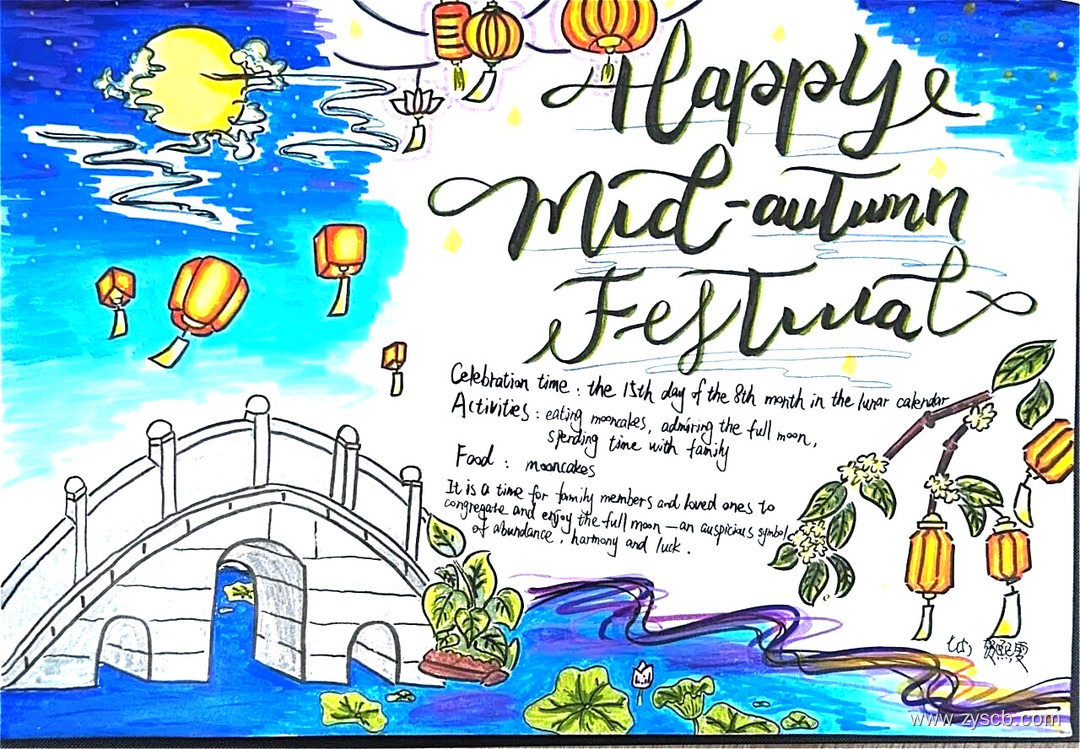 Happy
Mid-autumn
Festival
Celebration time : the 15th day of the 8th month in the lunar calendar
Activities : eating mooncakes, admiring the full moon,
spending time with family
Food : mooncakes
It is a time for family members and loved ones to
congregate and enjoy the full moon — an auspicious symbol
of abundance, harmony and luck.
www.zyscb.com